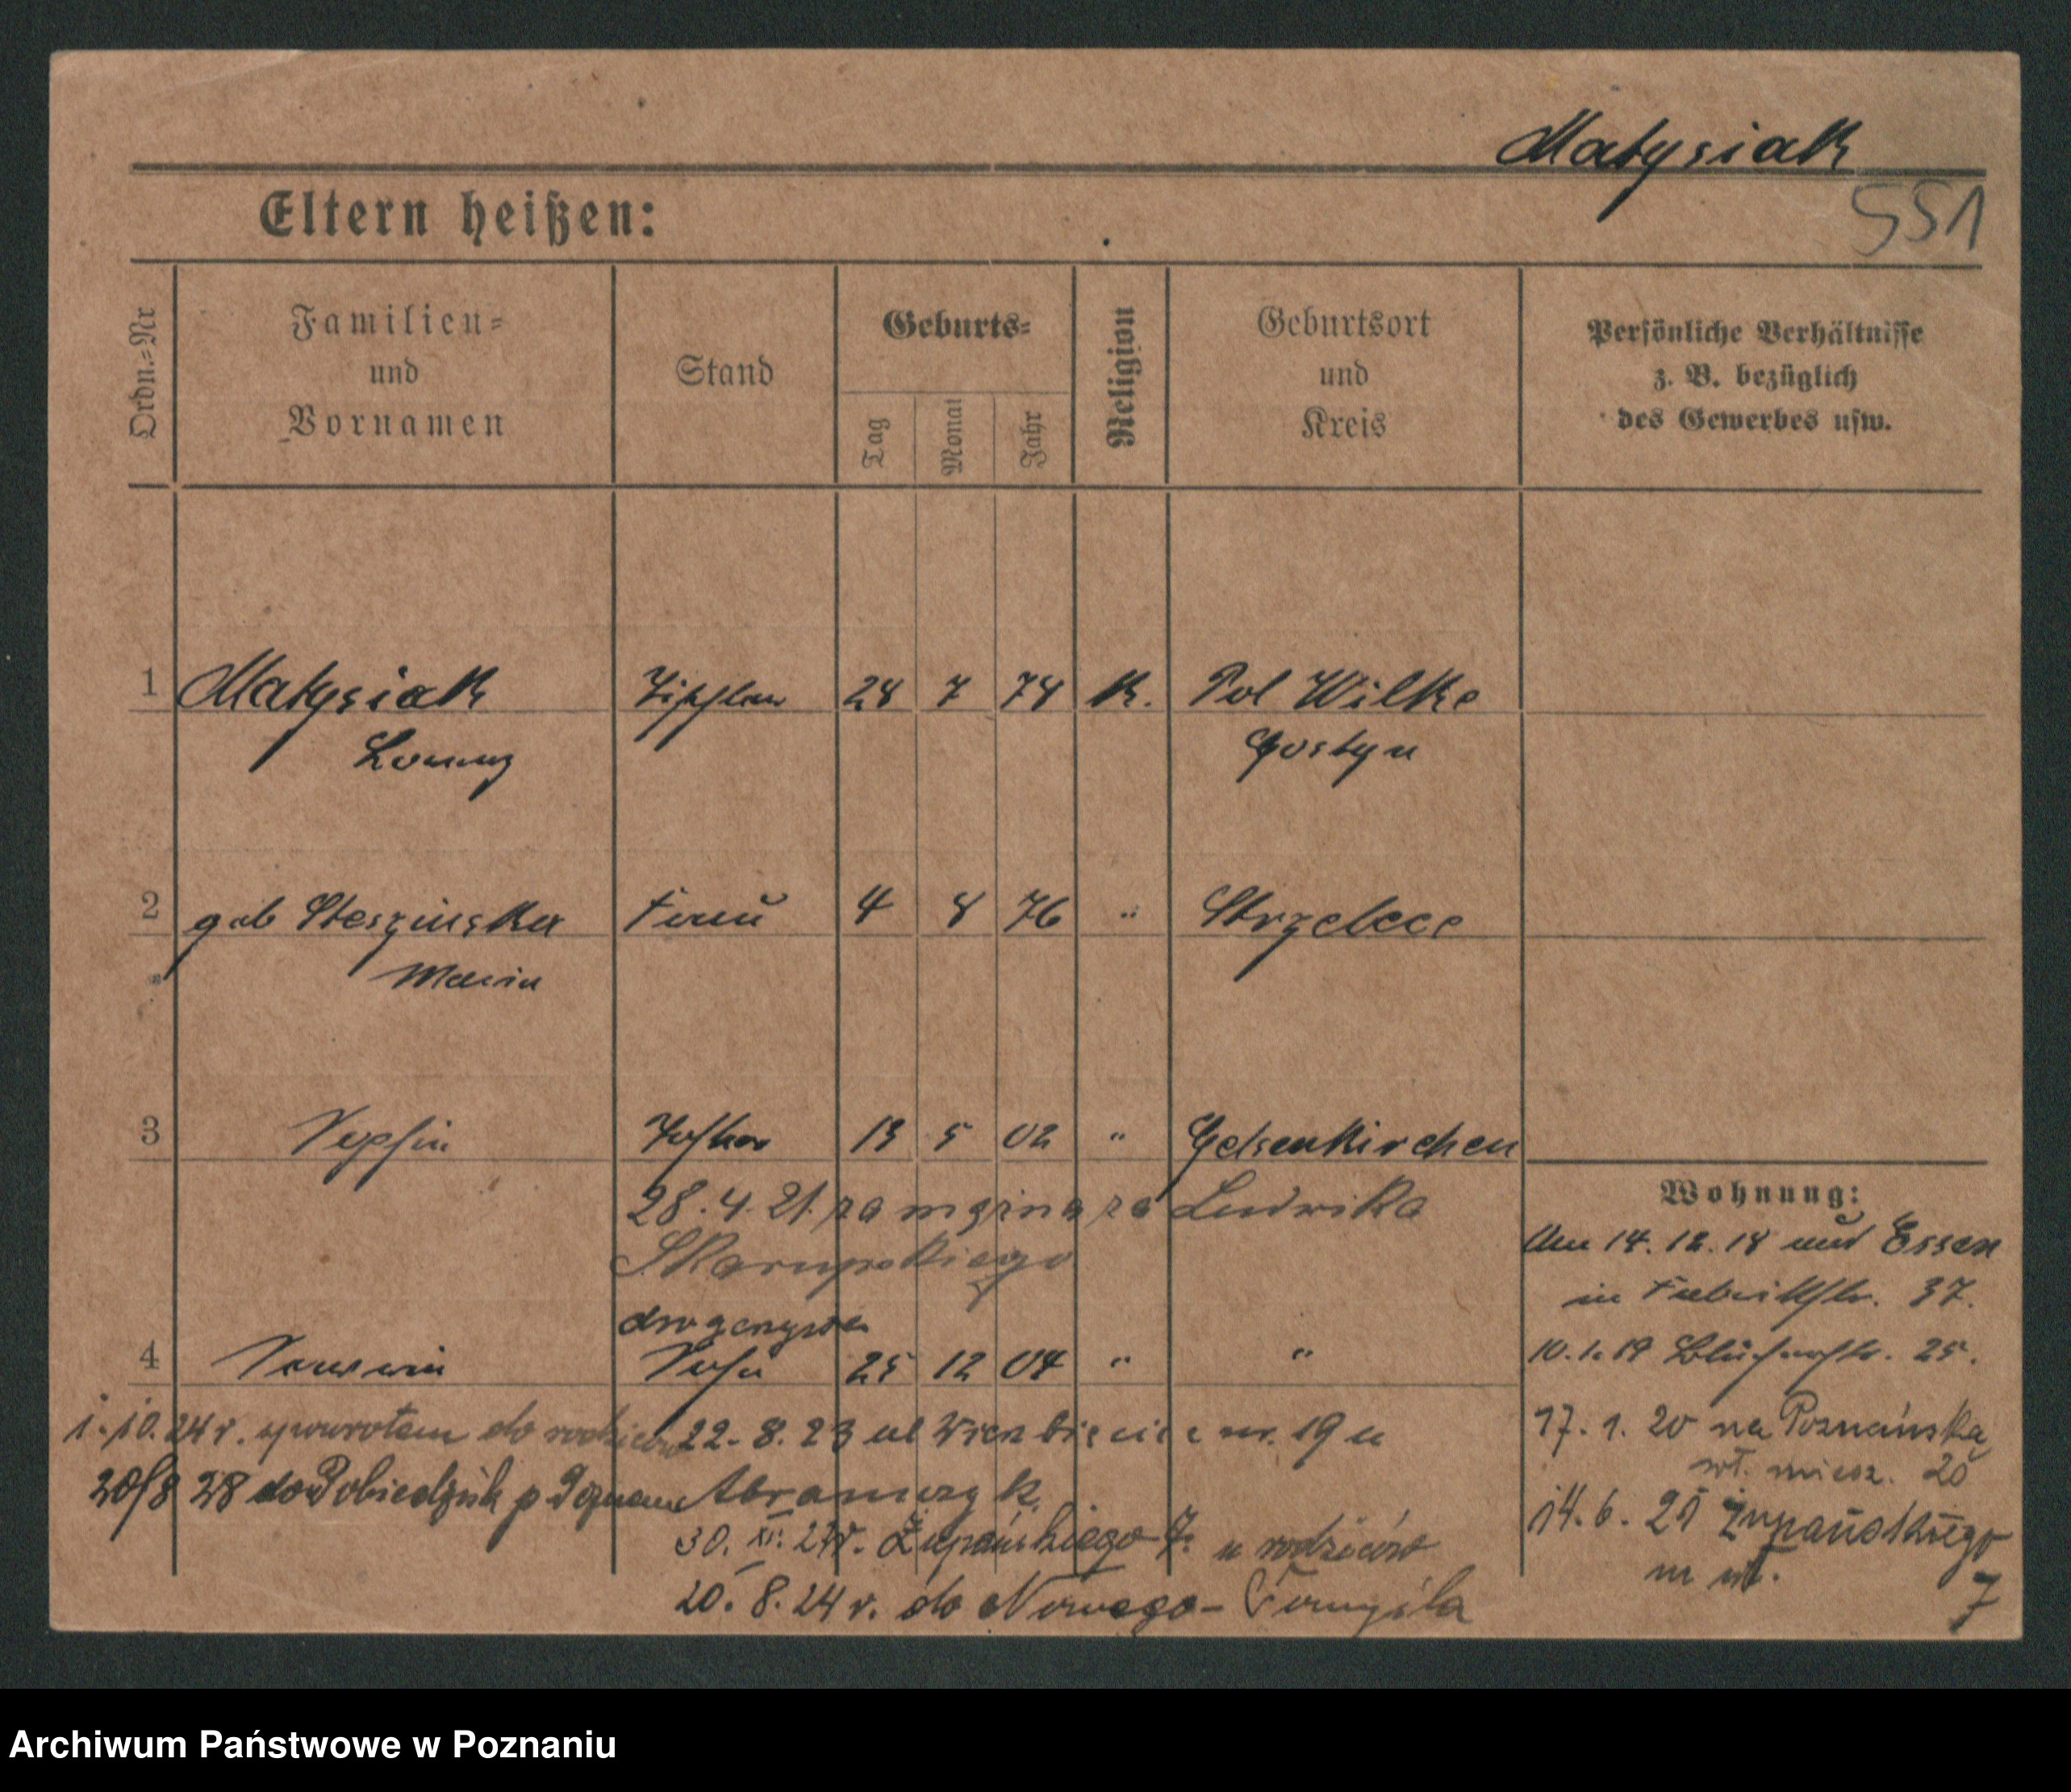 Matysiak
551
Eltern heißen:
Ordn.-Nr
Familien-
und
Vornamen
Stand
Geburts-
Tag
Monat
Jahr
Religion
Geburtsort
und
Kreis
Persönliche Verhältnisse
z. B. bezüglich
des Gewerbes usw.
1 Matysiak Tischler 28 7 74 k. Pol Wilke
Lorenz Gostyn
2 geb Steszinska Frau 4 8 76 " Strzelece
Maria
3 Sophia Tochter 13 5 02 " Gelsenkirchen
28.4.21. za mężna za Ludwika
Skorupskiego
drogerzysta
4 Sohn 25 12 04 " "
Wohnung:
Am 14.12.18 aus Essen
in Fabrikstr. 37.
10.1.19 Blücherstr. 25.
17.1.20 na Poznańską
wł. miesz. 20
14.6.21 Żupańskiego
m wł. 7
1.10.24 r. spowrotem do rodziców
22.8.23 ul Wierzbięcice nr. 19 u
20/8 28 do Pobiedzisk p Poznan
Abramczyk.
30. XI. Żupańskiego 7. u rodziców
20.8.24 r. do Nowego-Tomyśla
Archiwum Państwowe w Poznaniu